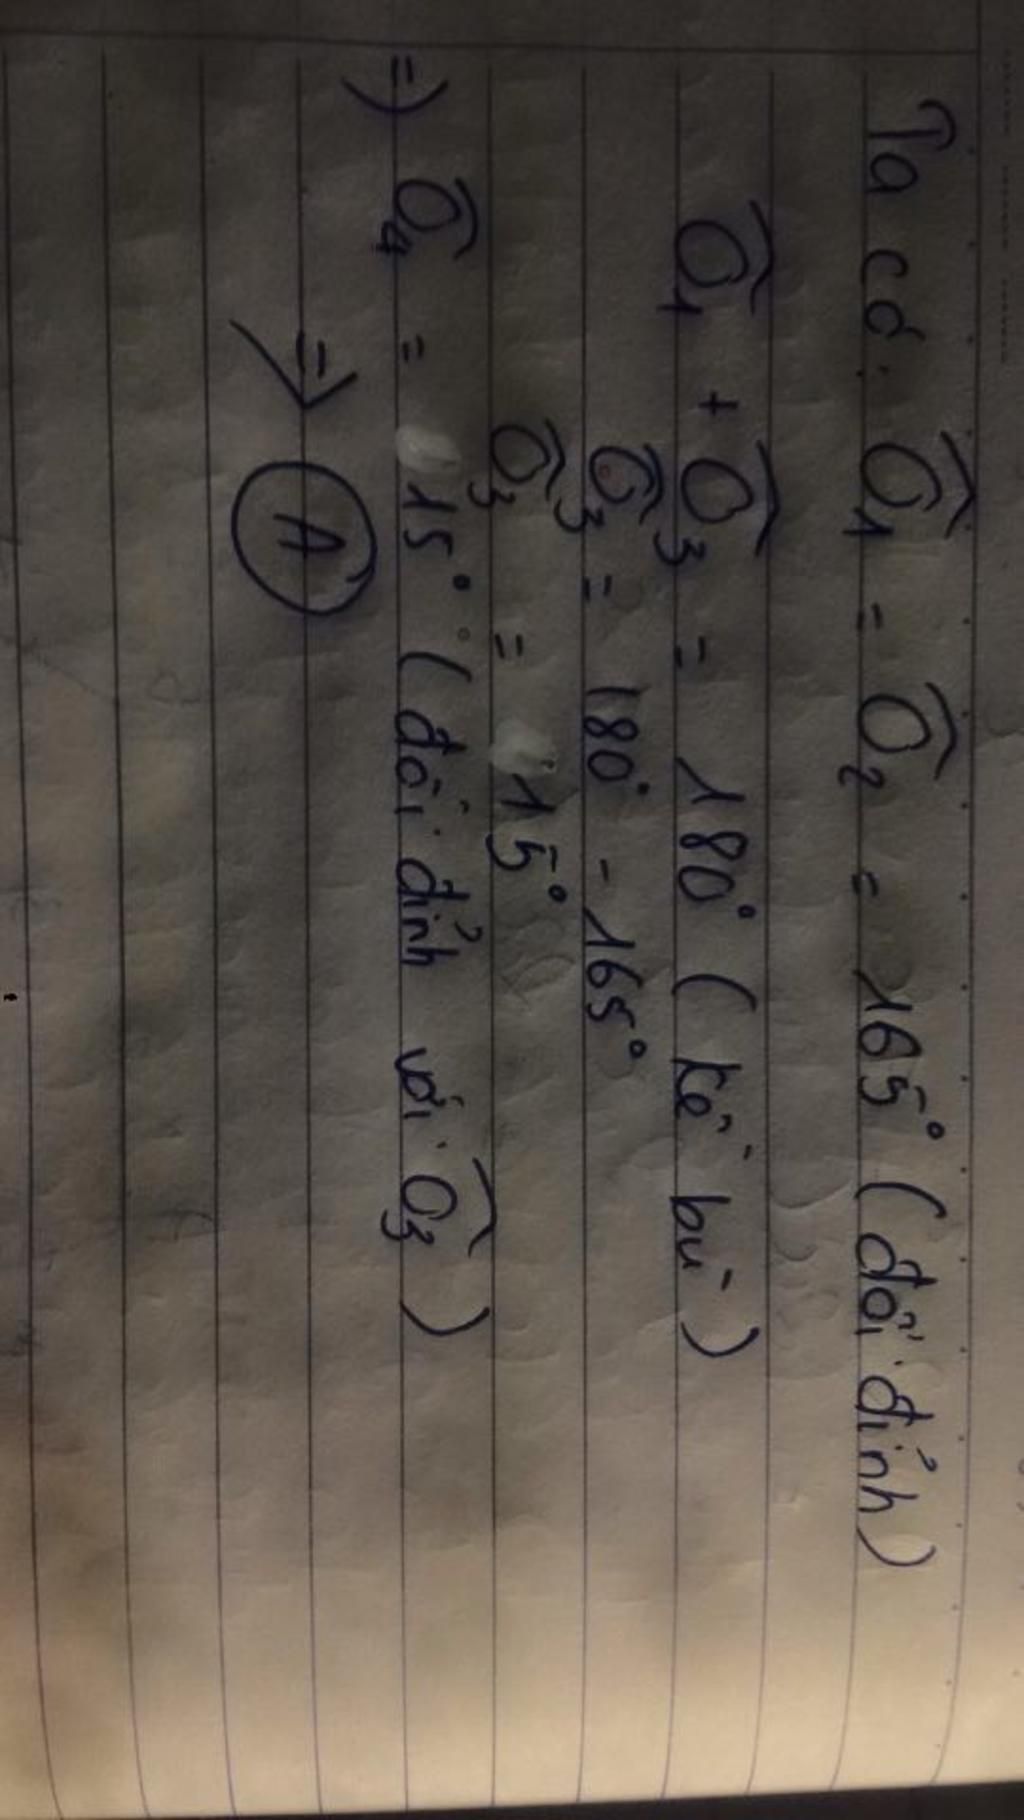 Ta có: Ô₁ = Ô₂ = 165° (đối đỉnh)
Ô₁ + Ô₃ = 180° (kề bù)
Ô₃ = 180° - 165°
Ô₃ = 15°
=) Ô₄ = 15° (đối đỉnh với Ô₃)
=> A